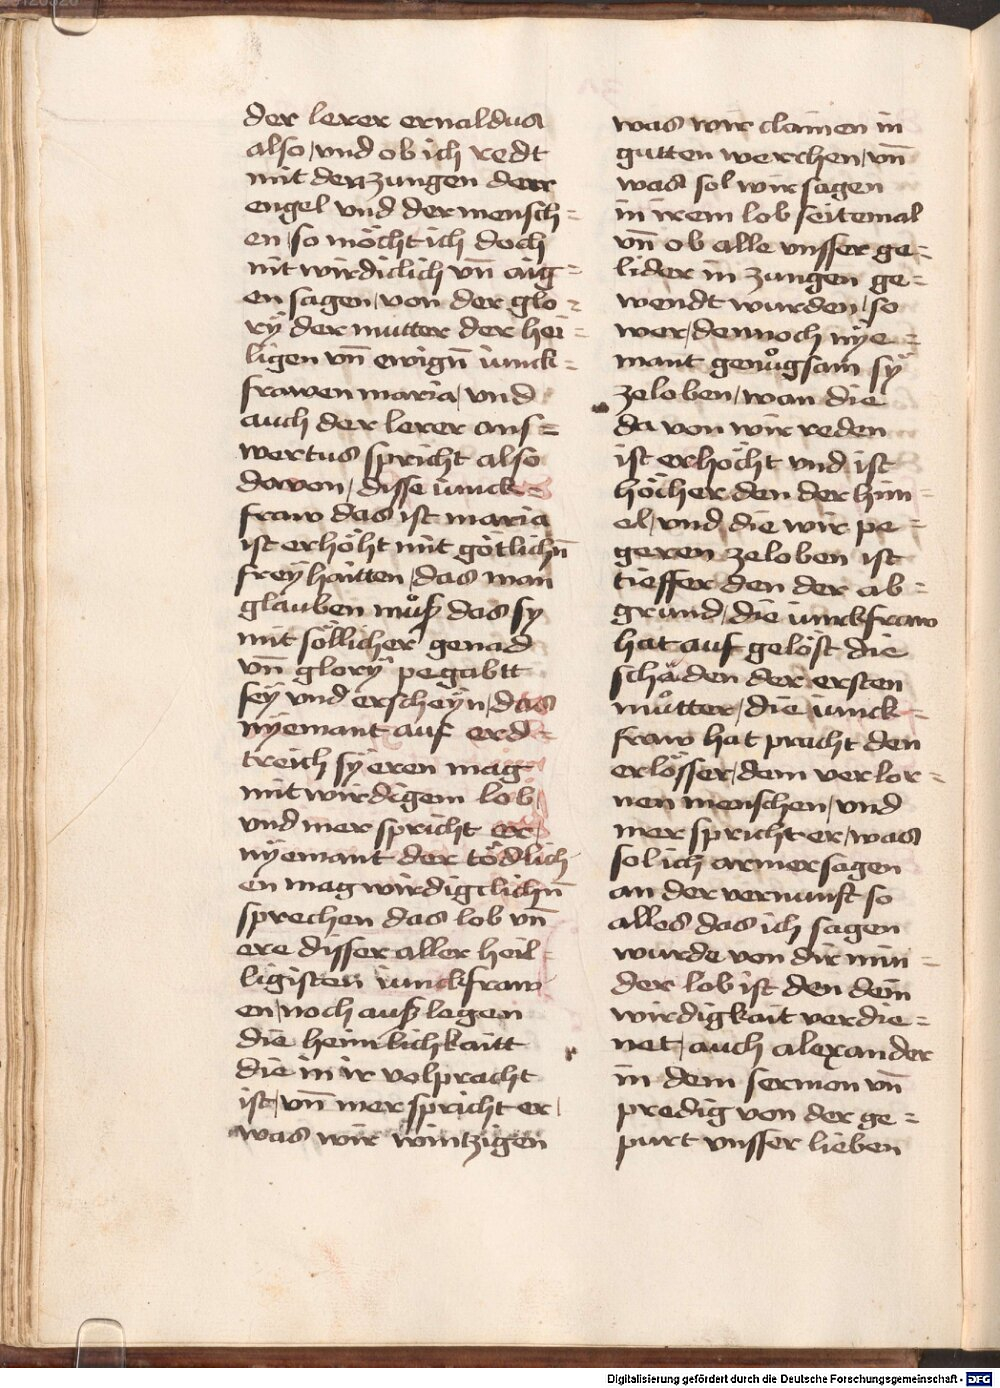 der lerer ernaldus
also / vnd ob ich redt
mit den zungen derr
engel vnd der mensch=
en / so möcht ich doch
nit wirdiclich vn̄ aig=
en sagen / von der glo=
rÿ der mutter der hei=
ligen vn̄ ewign̄ iunck=
frawen maria / vnd
auch der lerer ans=
wertus spricht also
davon / disse iunck=
fraw das ist maria
ist erhöht mit götlichn̄
freÿhaitten / das man
glauben mu̇ͦß das sy
mit söllicher genad
vn̄ glorÿ pegabtt
seÿ vnd erscheÿn / das
nÿemant auf erd=
treich sÿ eren mag
mit wirdigem lob /
vnd mer spricht er /
nÿemant der tödlich
en mag wirdigclichn̄
sprechen das lob vn̄
ere disser aller heil=
ligisten iunckfraw
en / noch auß legen
die heimlichkaitt
die in ir volpracht
ist / vn̄ mer spricht er /
was wir wintzigen
was wir clainen in
gutten werchen / vn̄
was sol wir sagen
in irem lob seitemal
vn̄ ob alle vnsser ge=
lider in zungen ge=
wendt wurden / so
wer / dennoch nÿe=
mant genu̇ͦgsam sÿ
zeloben / wan die
da von wir reden
ist erhöcht vnd ist
höcher den der him=
el / vnd die wir pe=
geren zeloben ist
tieffer den der ab=
grund / die iunckfraw
hat auf gelöst die
schäden der ersten
muͦtter / die iunck=
fraw hat pracht den
erlösser / dem verlor=
nen menschen / vnd
mer spricht er / was
sol ich armer sagen
an der vernunft so
alles das ich sagen
wurde von dir min=
der lob ist den dein
wirdigkait verdie=
net / auch alexander
in dem sermon vn̄
predig von der ge=
purt vnsser lieben
Digitalisierung gefördert durch die Deutsche Forschungsgemeinschaft - DFG